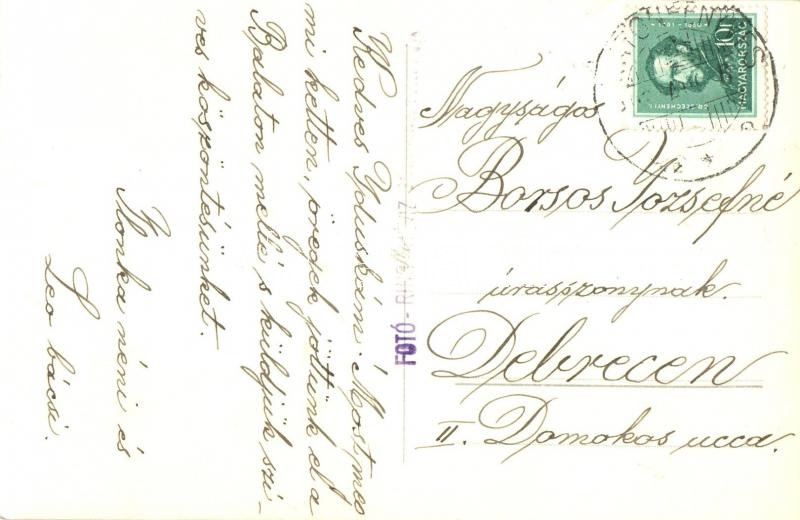 Kedves Iduskám! Most mos
mi ketten, öregek jöttünk el a
Balaton mellé s küldjük szí-
ves köszöntésünket.
Ilonka néni és
Leo bácsi.
FOTÓ -
10f
MAGYARORSZÁG
GR. SZÉCHENYI I.
Nagyságos
Borsos Józsefné
úrasszonynak.
Debrecen
II. Domokos ucca.